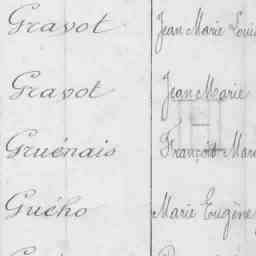 Gravot Jean Marie Louis
Gravot Jean Marie
Gruénais François Marie
Guého Marie Eugène